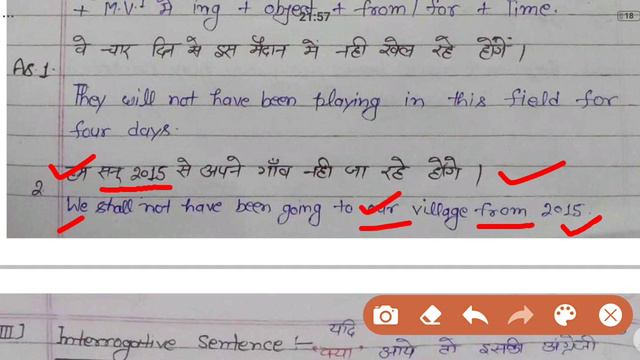 + M.V.¹ में ing + object + from/for + Time.
21:57
18
वे चार दिन से इस मैदान में नही खेल रहे होगें।
As 1.
They will not have been playing in this field for
four days.
2 हम सन् 2015 से अपने गाँव नही जा रहे होंगे।
We shall not have been going to our village from 2015.
III] Interrogative Sentence :- यदि
"क्या" आये तो इसकी अंग्रेजी